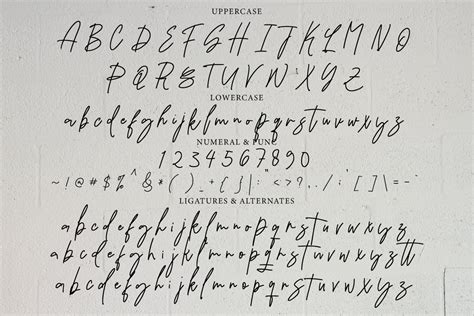 UPPERCASE
A B C D E F G H I J K L M N O
P Q R S T U V W X Y Z
LOWERCASE
a b c d e f g h i j k l m n o p q r s t u v w x y z
NUMERAL & FUNC
1 2 3 4 5 6 7 8 9 0
~ ! @ # $ % ^ & * ( ) _ + { } | : " < > ? , . / ; ' [ ] \ = -
LIGATURES & ALTERNATES
a b c d e f g h i j k l m n o p q r s t u v w x y z
a b c d e f g h i j k l m n o p q r s t u v w x y z tt
a b c d e f g h i j k l m n o p q r s t u v w x y z